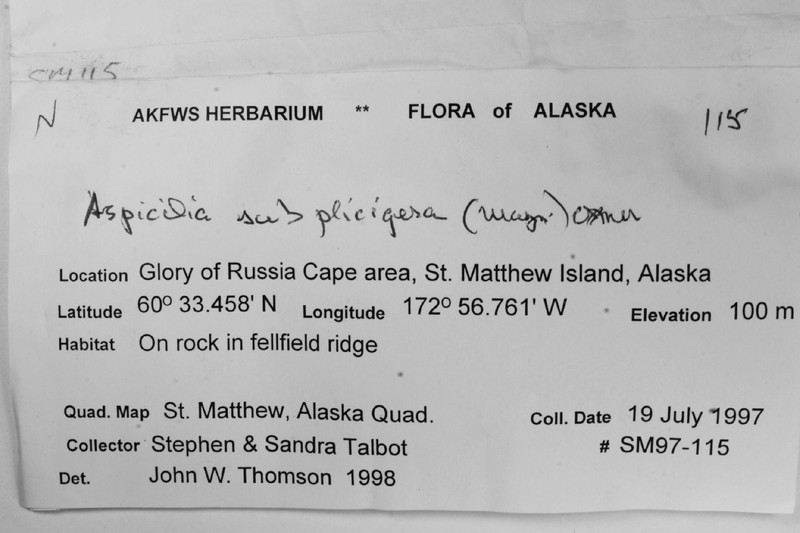 CM 115
N AKFWS HERBARIUM ** FLORA of ALASKA 115
Aspicilia subplicigera (Magn.) Oxner
Location Glory of Russia Cape area, St. Matthew Island, Alaska
Latitude 60º 33.458' N Longitude 172º 56.761' W Elevation 100 m
Habitat On rock in fellfield ridge
Quad. Map St. Matthew, Alaska Quad. Coll. Date 19 July 1997
Collector Stephen & Sandra Talbot # SM97-115
Det. John W. Thomson 1998